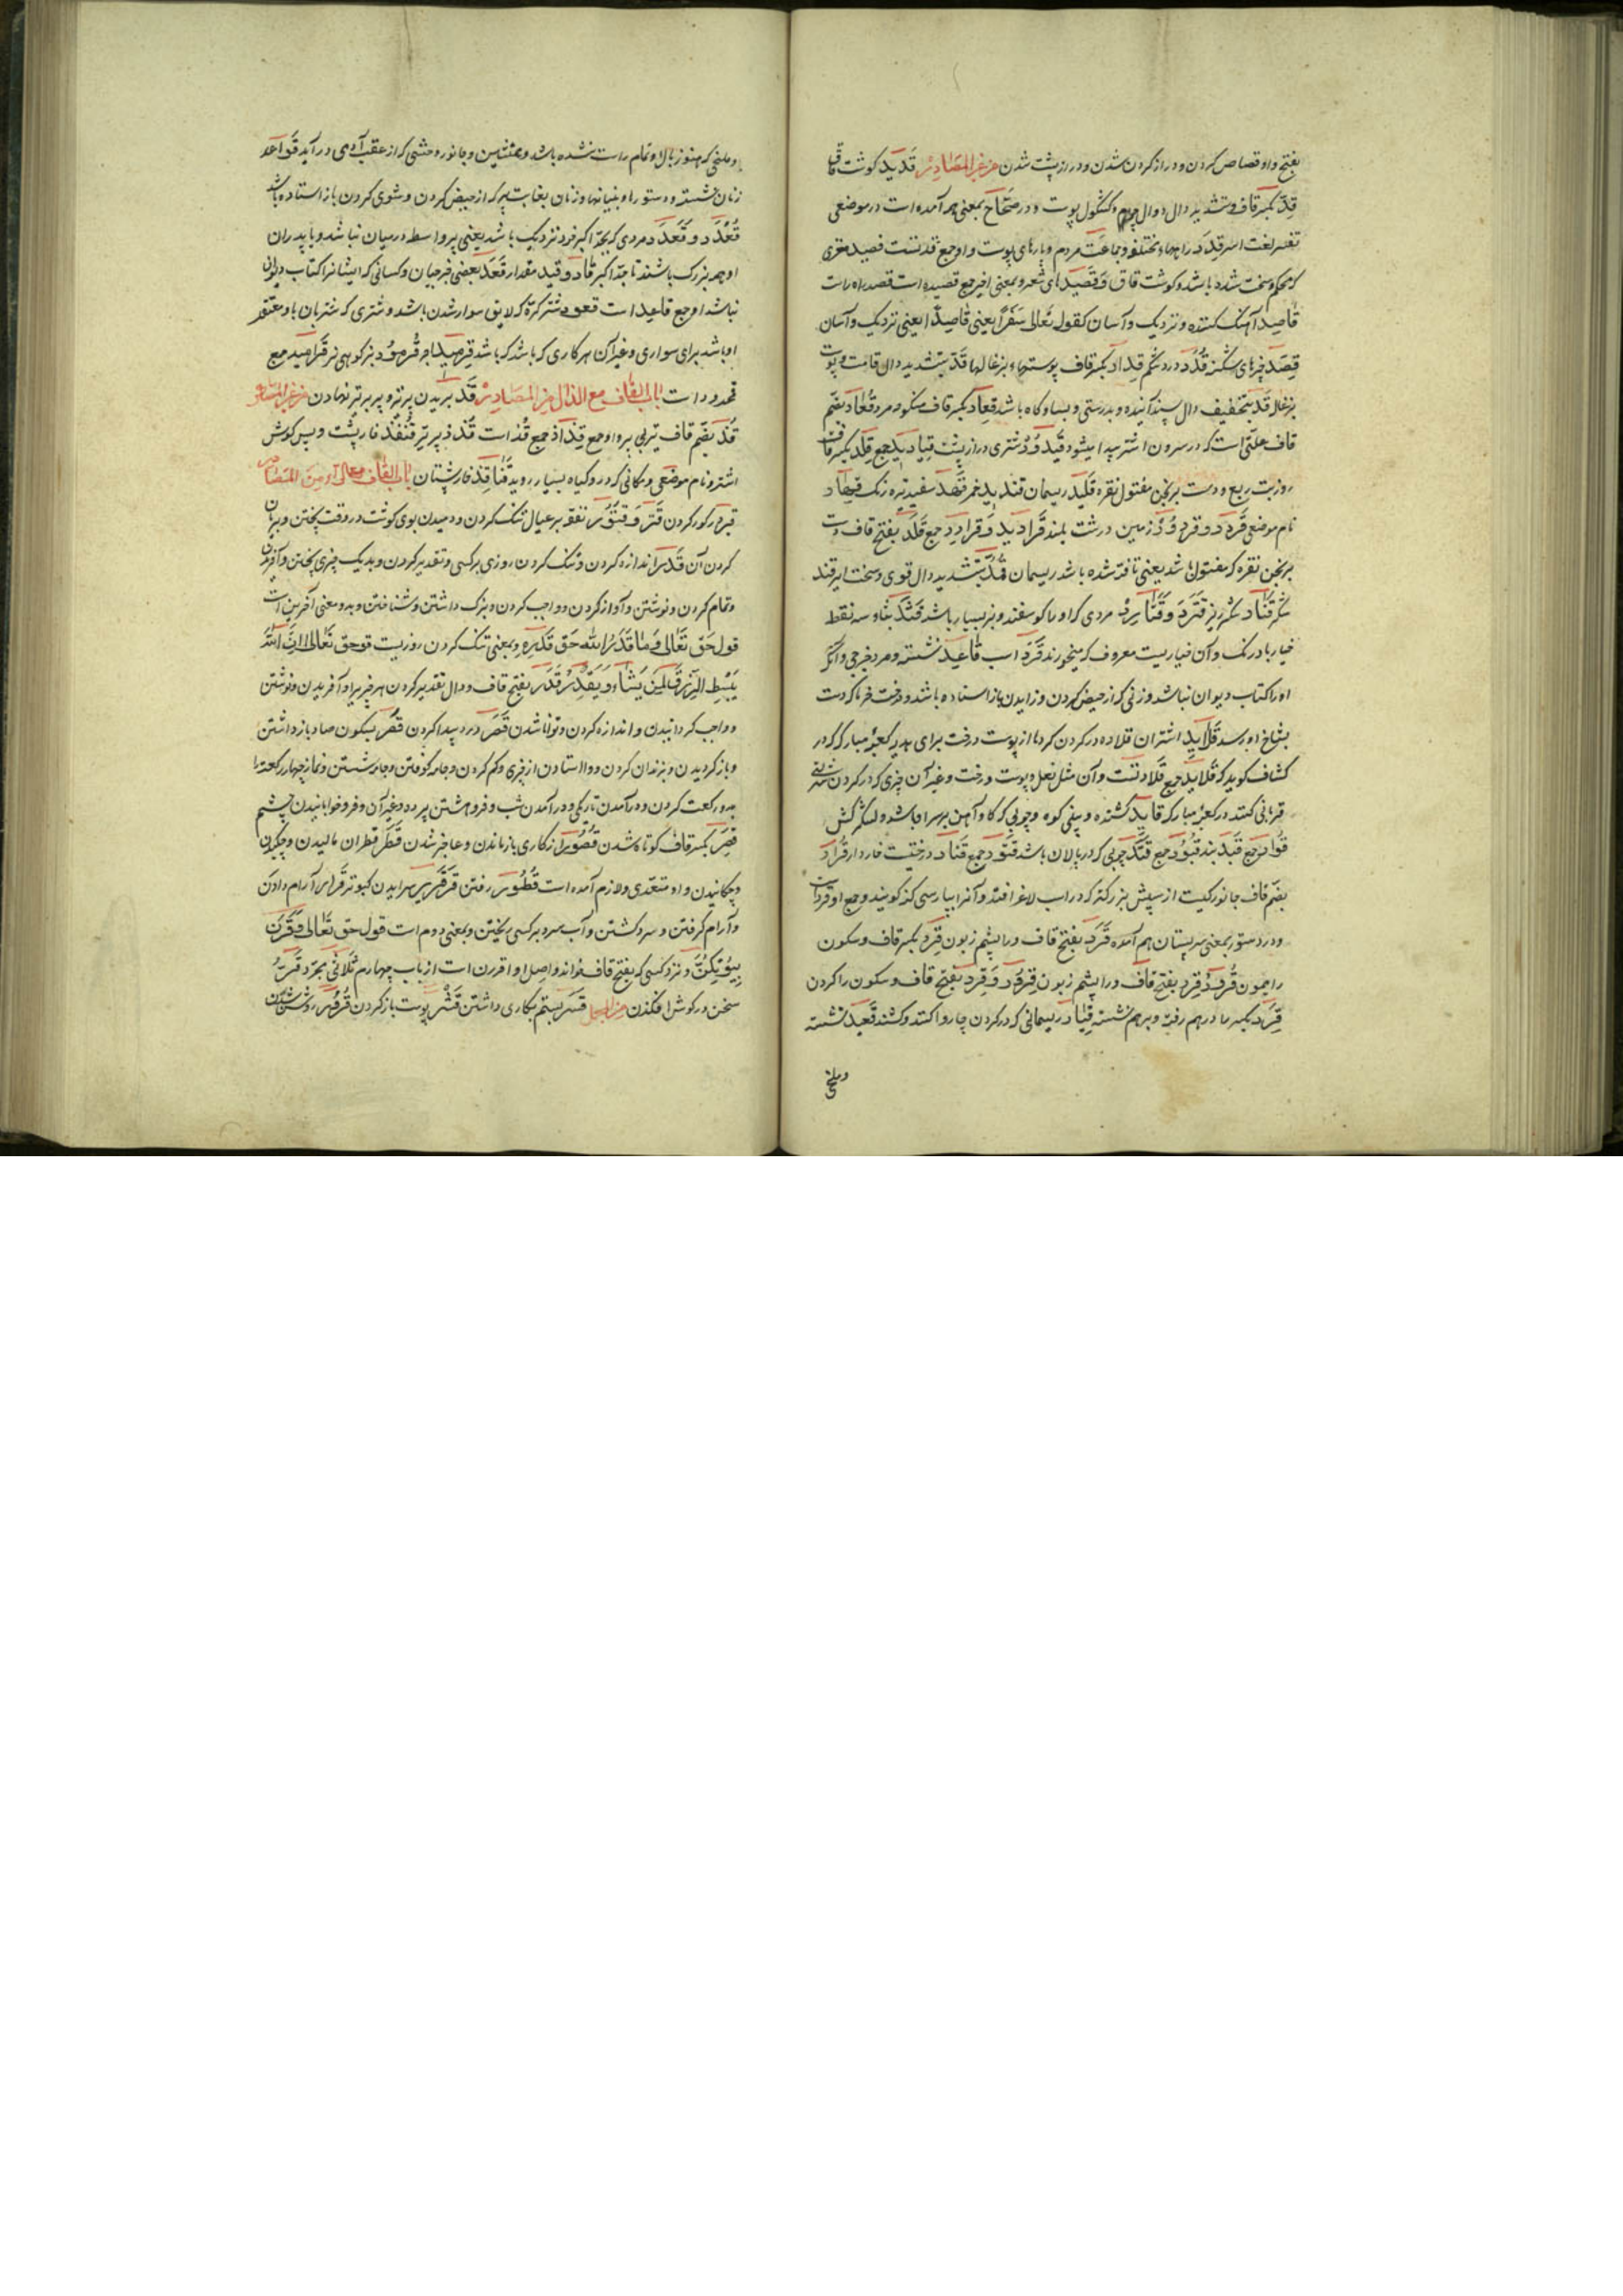 بفتح واو قصاص کردن و دراز کردن شدن و دراز پشت شدن من غیر المصادر قدید کوشت قاق
قد بکسر قاف و تشدید دال دوال و کشکول پوست و در صحاح بمعنی همه آمده است در موضعی
قدد راههاء مختلف و جماعت مردم و پارهای پوست و او جمع قدتست قصید مغزی
که محکم و سخت شده باشد و کوشت قاق و قصیدهای شعر و بمعنی اخیر جمع قصیده است قصد راه راست
قاصد آهنک کننده و نزدیک و آسان کقوله تعالی سفرا یعنی قاصدا یعنی نزدیک و آسان
قصد چیزهای شکسته قداد درد شکم قداد بکسر قاف پوستهاء بزغالها قد بتشدید دال قامت و پوست
بزغاله قد بتخفیف دال بسند آنیده و بدرستی و بسا و کاه باشد قعاد بکسر قاف منکوحه مرد قعاد بضم
قاف علتی است که در سرون اشتر پیدا میشود قیدود شتری دراز پشت قیادید جمع قلد بکسر قاف
روز تب ربع و دست برنجن مفتول نقره قلید ریسمان قندید خمر قهد سفید تیره رنک قهاد
نام موضعی قردد و قردود زمین درشت بلند قرادید و قرادد جمع قلد بفتح قاف دست
برنجن نقره که مفتول باشد یعنی تافته شده باشد ریسمان قمد بتشدید دال قوی و سخت
شکر قناد شکر ریز قثرد و قثارد مردی که او را کوسفند و بز بسیار باشد قثد بثاء سه نقط
خیار بادرنک و آن خیاریست معروف که میخورند قاعد نشسته و مرد
او را کتاب دیوان نباشد و زنی که از حیض کردن و زاییدن باز استاده باشد و درخت خرما که دست
بشاخ او رسد قلاید اشتران قلاده در کردن کرده از پوست درخت برای هدیه کعبه مبارک که در
کشاف کوید که قلاید جمع قلادتست و آن مثل نعل و پوست درخت و غیر آن چیزی که در کردن
قربانی کنند در کعبه مبارکه قاید کشنده و بینی کوه و چوبی که آهن بر سر او باشد و لشکر کش
قواد جمع قید بند قیود جمع قتد چوبی که در پالان باشد قتود جمع قتاد درختیست خاردار قراد
بضم قاف جانورکیست از سپش بزرکتر که در اسب لاغر افتد و آنرا بپارسی کنه کویند و جمع او قردان
و در دستور بمعنی سر پستان هم آمده قرد بفتح قاف و را پشم زبون قرد بکسر قاف و سکون
را میمون قرود قرد بفتح قاف و را پشم زبون قرود و قرد بفتح قاف و سکون را کردن
قرد بکسر را درهم رفته و برهم نشسته قیاد ریسمانی که در کردن چاروا کنند و کشند قعید نشسته
و ملخی
و ملخی که هنوز بال او تمام راست نشده باشد و همنشین و جانور وحشی که از عقب آدمی در آید قواعد
زنان نشسته و دستور او بنیانها و زنان بغایت پیر که از حیض کردن و شوی کردن باز استاده باشد
قعدد و قعدد مردی که بجد اکبر خود نزدیک باشد یعنی واسطه درمیان نباشد و یا پدران
او همه بزرک باشند تا جد اکبر قاد و قید مقدار قعد بعضی خرجیان و کسانی که ایشانرا کتاب دیوان
نباشد او جمع قاعد است قعود شتر کره که لایق سوار شدن باشد و شتری که شتربان
او باشد برای سواری و غیر آن هر کاری که باشد قرمید آجر قرهود بز کوهی نر قراهید جمع
قحدود است باب القاف مع الذال من المصادر قذ بریدن پر تیر و پر بر تیر نهادن من غیر المصادر
قذ بضم قاف تیر بی پر و او جمع قذاذ جمع قذ است قذذ پر تیر قنفذ خارپشت و پس کوش
اشتر و نام موضعی و مکانی که درو کیاه بسیار روید قنافذ خارپشتان باب القاف مع الراء من المصادر
قبر در کور کردن قتر و قتور نفقه بر عیال تنک کردن و دمیدن بوی کوشت در وقت پختن و بریان
کردن آن قدر اندازه کردن و تنک کردن روزی بر کسی و تقدیر کردن و بدیک چیزی پختن و آفریدن
و تمام کردن و نوشتن و آواز کردن و واجب کردن و بزرک داشتن و شناختن و بدو معنی آخرین است
قول حق تعالی و ما قدروا الله حق قدره و بمعنی تنک کردن روزیست قوله حق تعالی ان الله
یبسط الرزق لمن یشاء و یقدر قدر بفتح قاف و دال تقدیر کردن هر چیز برا و آفریدن و نوشتن
و واجب کردانیدن و اندازه کردن و توانا شدن قصر درد پیدا کردن قصر بسکون صاد باز داشتن
و باز کردیدن و بزندان کردن و وا استادن از چیزی و کم کردن و جامه کوفتن و جامه شستن و نماز چهار رکعت را
بدو رکعت کردن و در آمدن تاریکی و در آمدن شب و فروهشتن پرده و غیر آن و فرو خوابانیدن چشم
قصر بکسر قاف کوتاه شدن قصور از کاری باز ماندن و عاجز شدن قطر قطران مالیدن و چکیدن
و چکانیدن و او متعدی و لازم آمده است قطور رفتن قرقر سراییدن کبوتر قرار آرام دادن
و آرام کرفتن و سرد کشتن و آب سرد بر کسی ریختن و بمعنی دوم است قول حق تعالی و قرن
فی بیوتکن و نزد کسی که بفتح قاف خواند و اصل او اقررن است از باب چهارم ثلاثی مجرد قر
سخن در کوش افکندن قسر بستم بکاری داشتن قشر پوست باز کردن